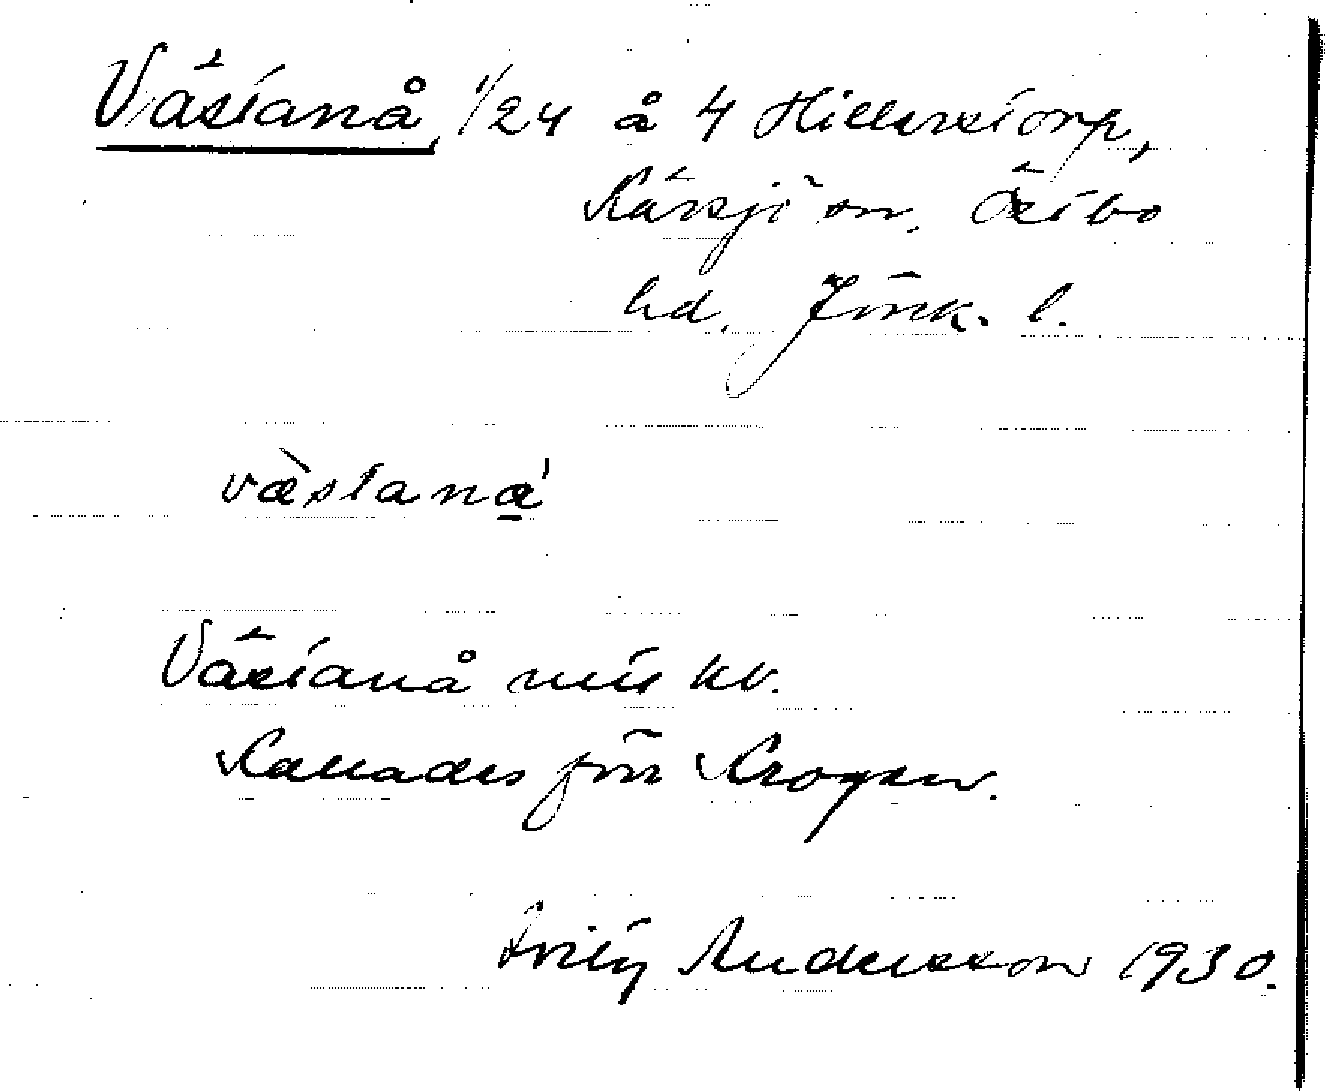 Västanå, 1/24 å 4 Hillerstorp,
Kävsjö sn, Östbo
hd, Jönk. l.
væ̀stanạ'
Västanå mtl kv.
Kallades förr Krogen.
Fritz Andersson 1930.